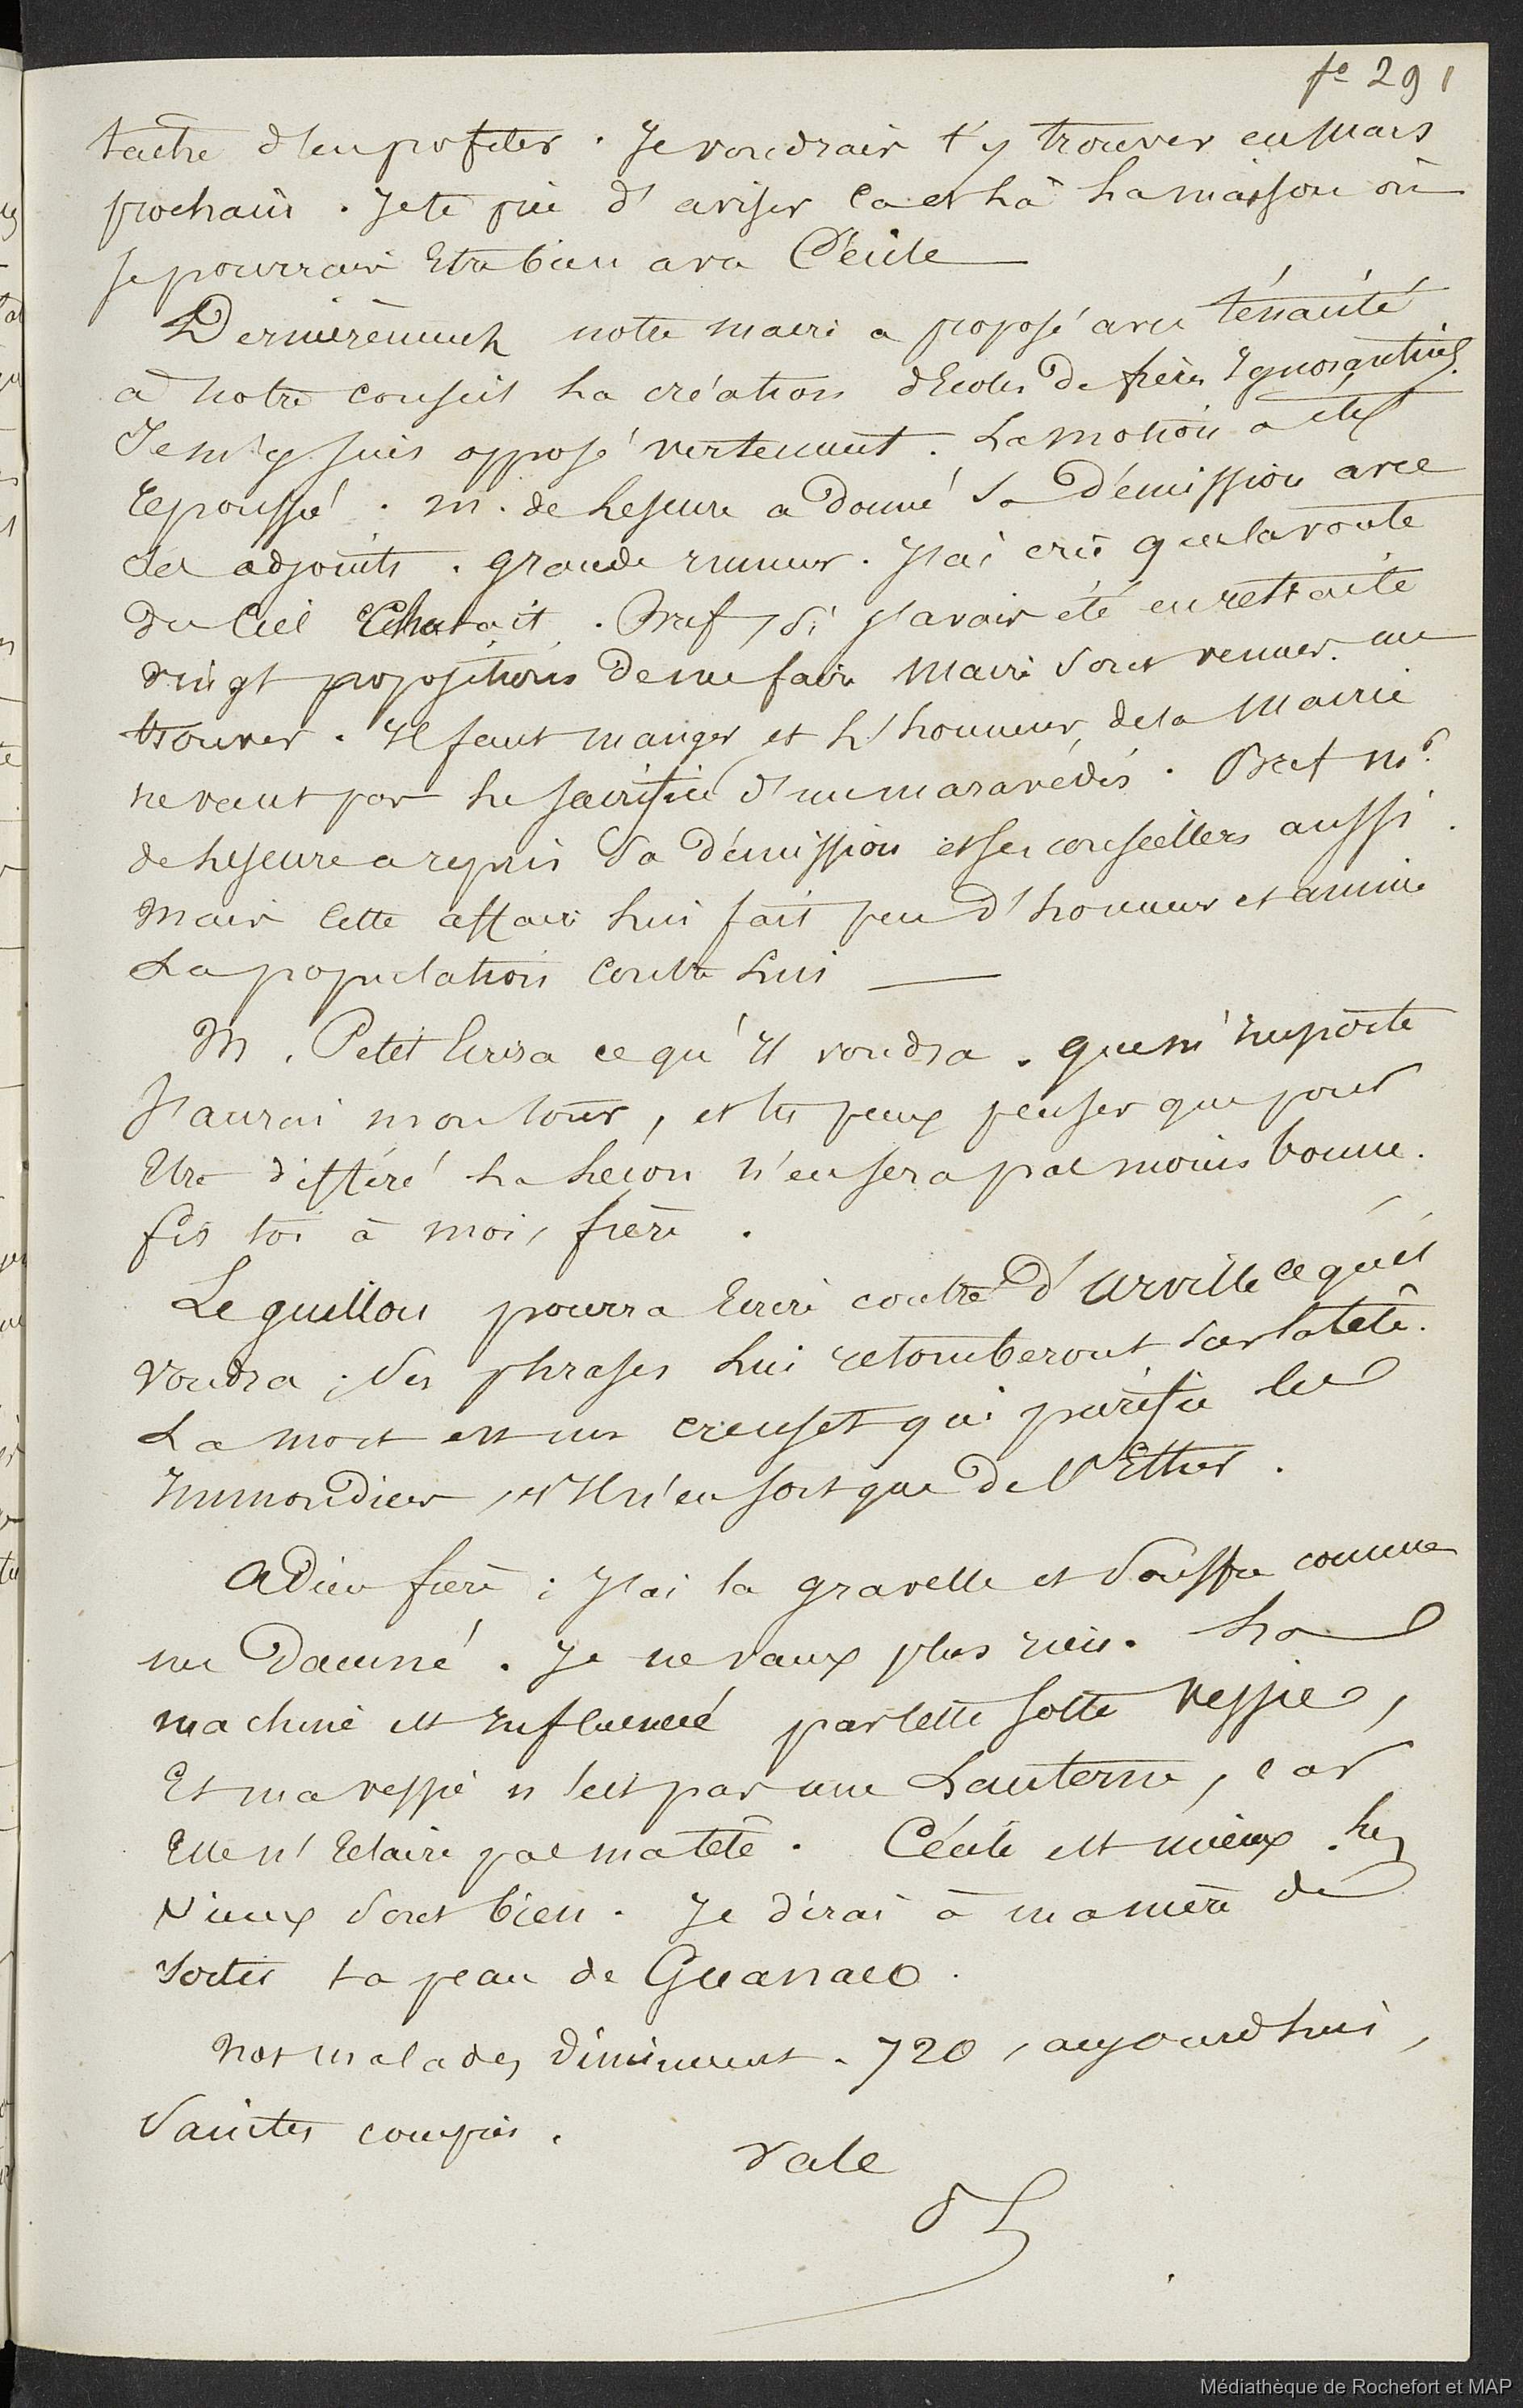 fo 291
tache d'en profiter. Je voudrais t'y trouver en mars
prochain. Je te prie d'aviser ca et là la maison où
je pourrais Etre bien avec Cécile —
Dernièrement notre maire a proposé avec ténacité
à notre conseil la création d'Ecoles de frères Ignorantins.
Je m'y suis opposé vertement. La motion a été
repoussée. M. de Leseure a donné sa démission avec
ses adjoints. grande rumeur. J'ai cru que la voute
du Ciel . Bref, si j'avais été en retraite
vingt propositions de me faire Maire sont venues me
trouver. Il faut manger et l'honneur de la Mairie
ne vaut pas le sacrifice d'un maravédis. Bref Mr.
de Leseure a repris sa démission et ses conseillers aussi.
Mais cette affaire lui fait peu d'honneur et anime
La population contre Lui —
M. Petit Ecrira ce qu'Il voudra. que m'Importe
J'aurai mon tour, et tu peux penser que pour
Etre différé la leçon n'en sera pas moins bonne.
fis toi à moi, frère.
Le guillou pourra Ecrire contre d'Urville ce qu'il
voudra; ses phrases Lui retomberont sur la tête.
La mort est un creuset qui purifie les
Immondices, et Il n'en sort que de l'Ether.
Adieu frère; J'ai la gravelle et souffre comme
un Damné. Je ne vaux plus rien. La
machine est Influencée par cette sotte vessie,
Et ma vessie n'est pas une Lanterne, car
Elle n'Eclaire pas ma tête. Cécile est mieux. Les
vieux sont bien. Je dirai à ma mère de
sortir ta peau de Guanaco.
Nos malades diminuent. 720, aujourd'hui,
Saintes compris.
Vale
Médiathèque de Rochefort et MAP